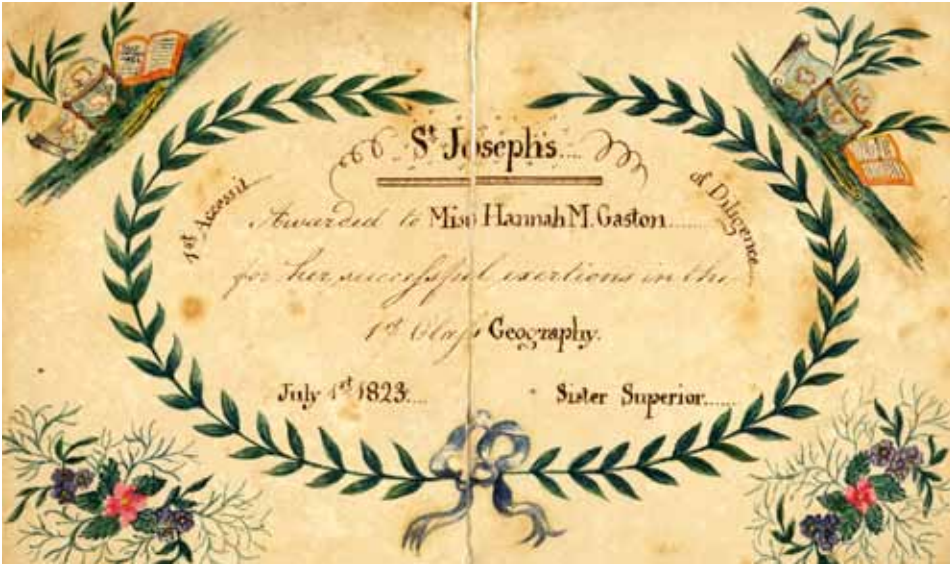 St Josephs....
1st Accessit
of Diligence
Awarded to Miss Hannah M. Gaston.......
for her successful exertions in the
1st Class Geography.
July 1st 1823....
Sister Superior......